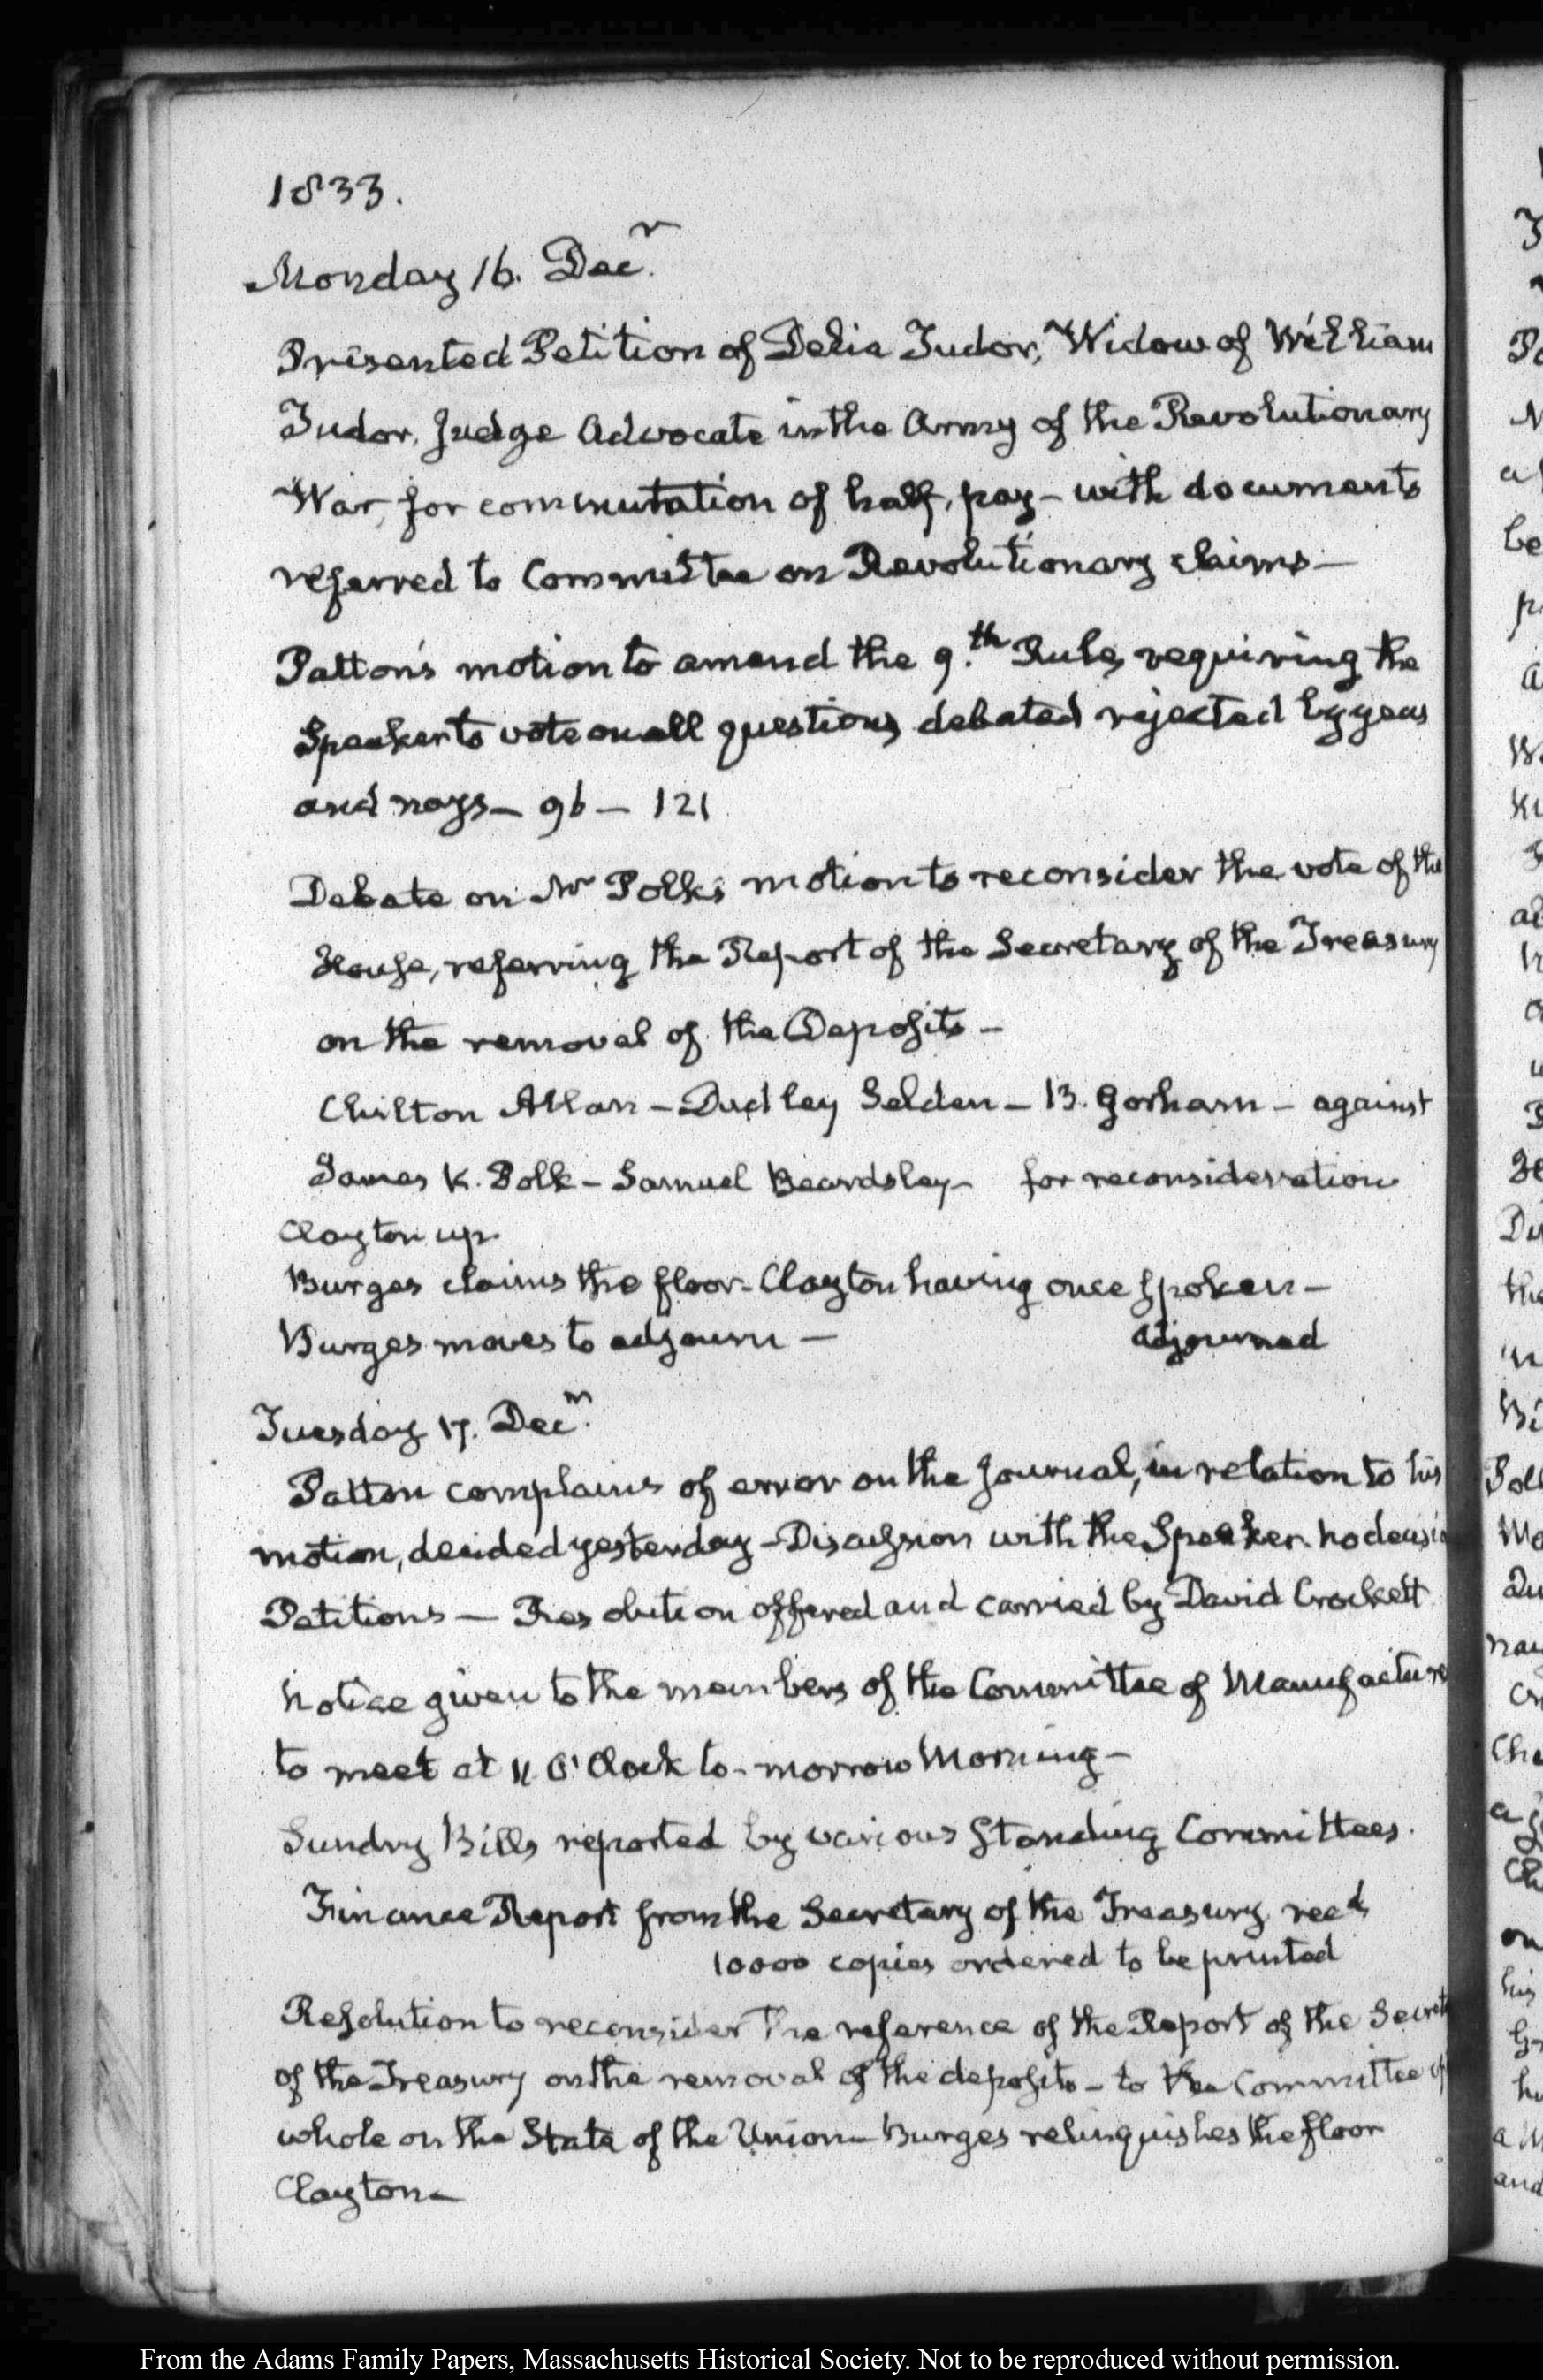 1833.
Monday 16. Decr.
Presented Petition of Delia Tudor, Widow of William
Tudor, Judge Advocate in the Army of the Revolutionary
War, for commutation of half, pay — with documents
referred to Committee on Revolutionary claims —
Patton's motion to amend the 9.th Rule, requiring the
Speaker to vote on all questions, debated rejected by yeas
and nays — 96 — 121
Debate on Mr Polk's motion to reconsider the vote of the
House, referring the Report of the Secretary of the Treasury
on the removal of the Deposits —
Chilton Allan — Dudley Selden — B. Gorham — against
James K. Polk — Samuel Beardsley — for reconsideration
Clayton up.
Burges claims the floor — Clayton having once spoken —
Burges moves to adjourn — Adjourned
Tuesday 17. Decr.
Patton complains of error on the Journal, in relation to his
motion, decided yesterday — Discussion with the Speaker. no decisio
Petitions — Resolution offered and carried by David Crockett
Notice given to the members of the Committee of Manufacture
to meet at 11. O'Clock to-morrow Morning —
Sundry Bills reported by various Standing Committees.
Finance Report from the Secretary of the Treasury recd
10000 copies ordered to be printed
Resolution to reconsider the reference of the Report of the Secret
of the Treasury on the removal of the deposits — to the Committee of
whole on the State of the Union — Burges relinquishes the floor
Clayton —
From the Adams Family Papers, Massachusetts Historical Society. Not to be reproduced without permission.